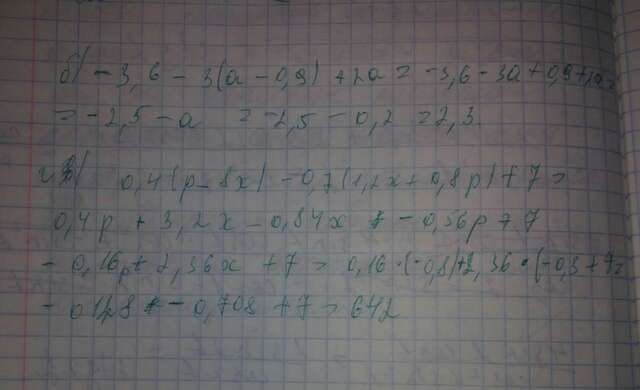 б) - 3,6 - 3(a - 0,9) + 2a = -3,6 - 3a + 0,9 + 2a =
= -2,5 - a = -2,5 - 0,2 = 2,3.
0,4(p - 8x) - 0,7(1,2x + 0,8p) + 7 =
0,4p + 3,2x - 0,84x + - 0,56p + 7
- 0,16p + 2,36x + 7 = 0,16 · (-0,8) + 2,36 · (-0,3 + 7 =
- 0,128 + - 0,708 + 7 = 642